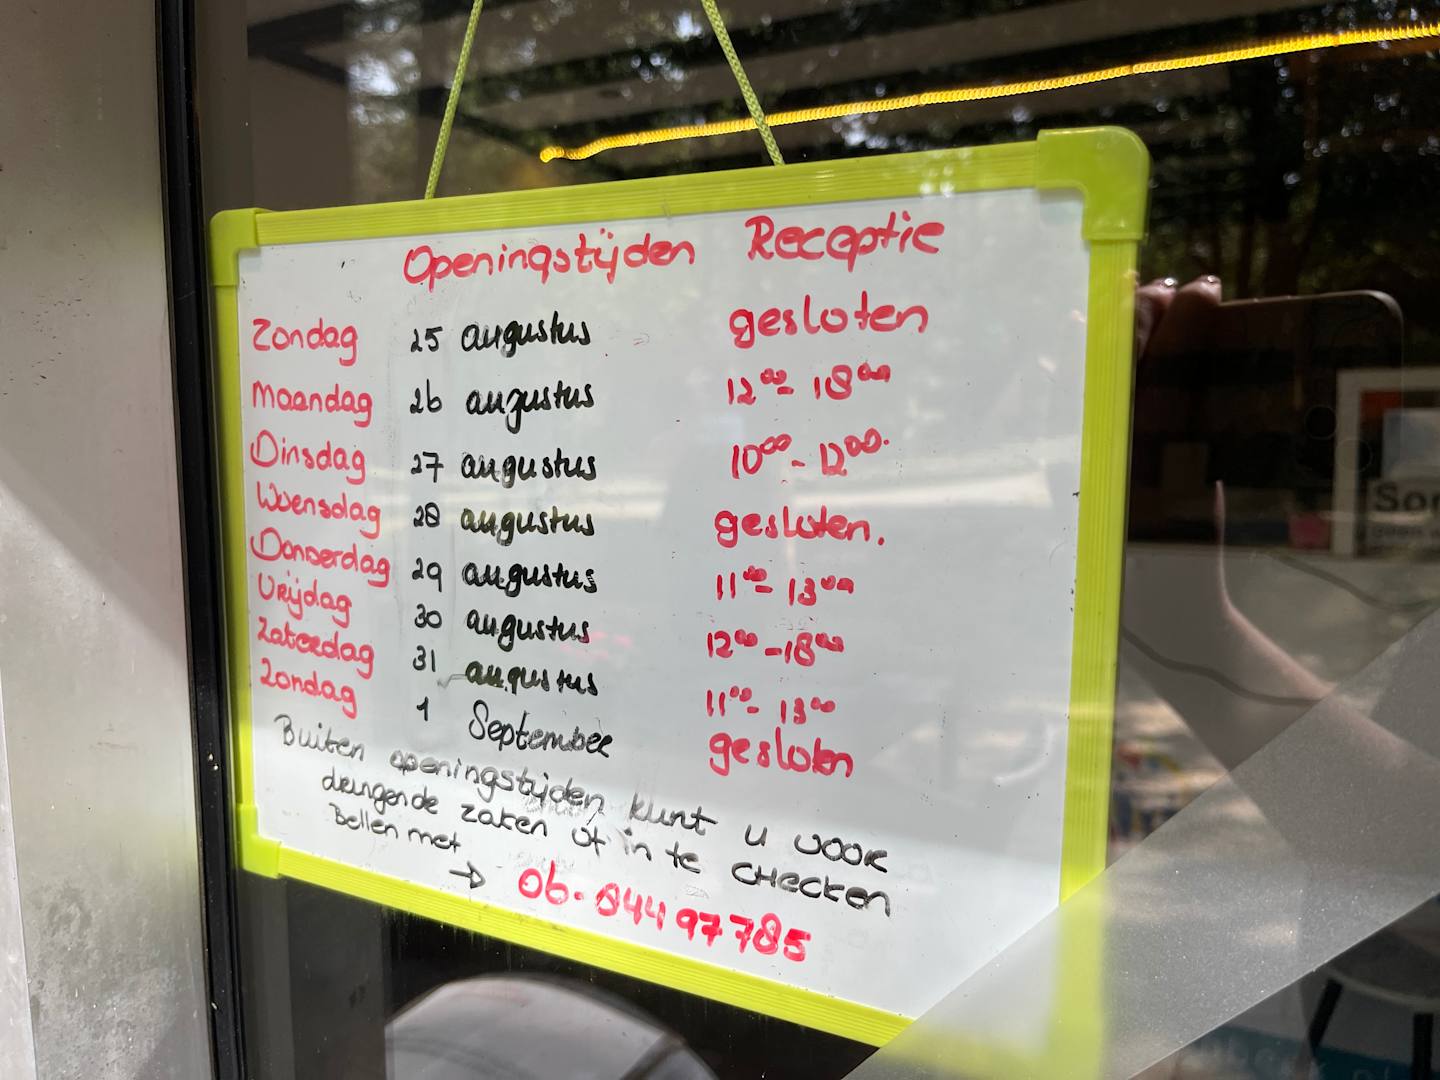 Openingstijden Receptie
Zondag 25 augustus gesloten
Maandag 26 augustus 12⁰⁰- 18⁰⁰
Dinsdag 27 augustus 10⁰⁰- 12⁰⁰.
Woensdag 28 augustus gesloten.
Donderdag 29 augustus 11⁰⁰- 13⁰⁰
Vrijdag 30 augustus 12⁰⁰-18⁰⁰
Zaterdag 31 augustus 11⁰⁰- 13⁰⁰
Zondag 1 September gesloten
Buiten openingstijden kunt u voor
dringende zaken of in te CHecken
Bellen met
→ 06-84497785